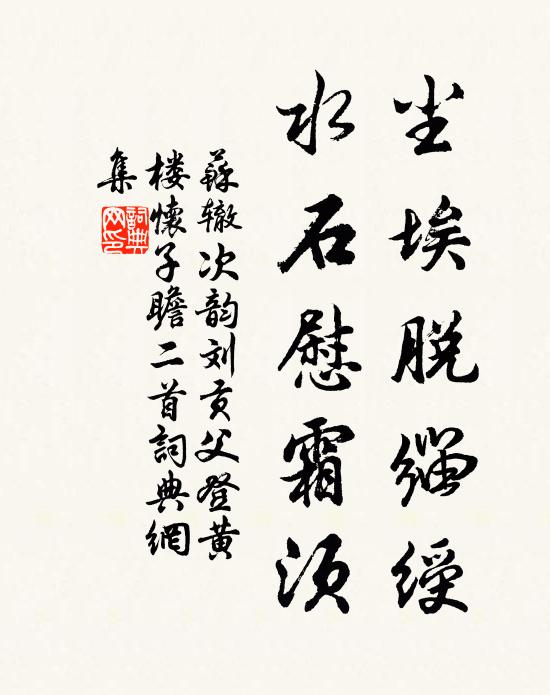 尘埃脱缨绶
水石慰霜须
蘇辙次韵刘贡父登黄
楼懷子瞻二首詞典網
集
詞典
网印